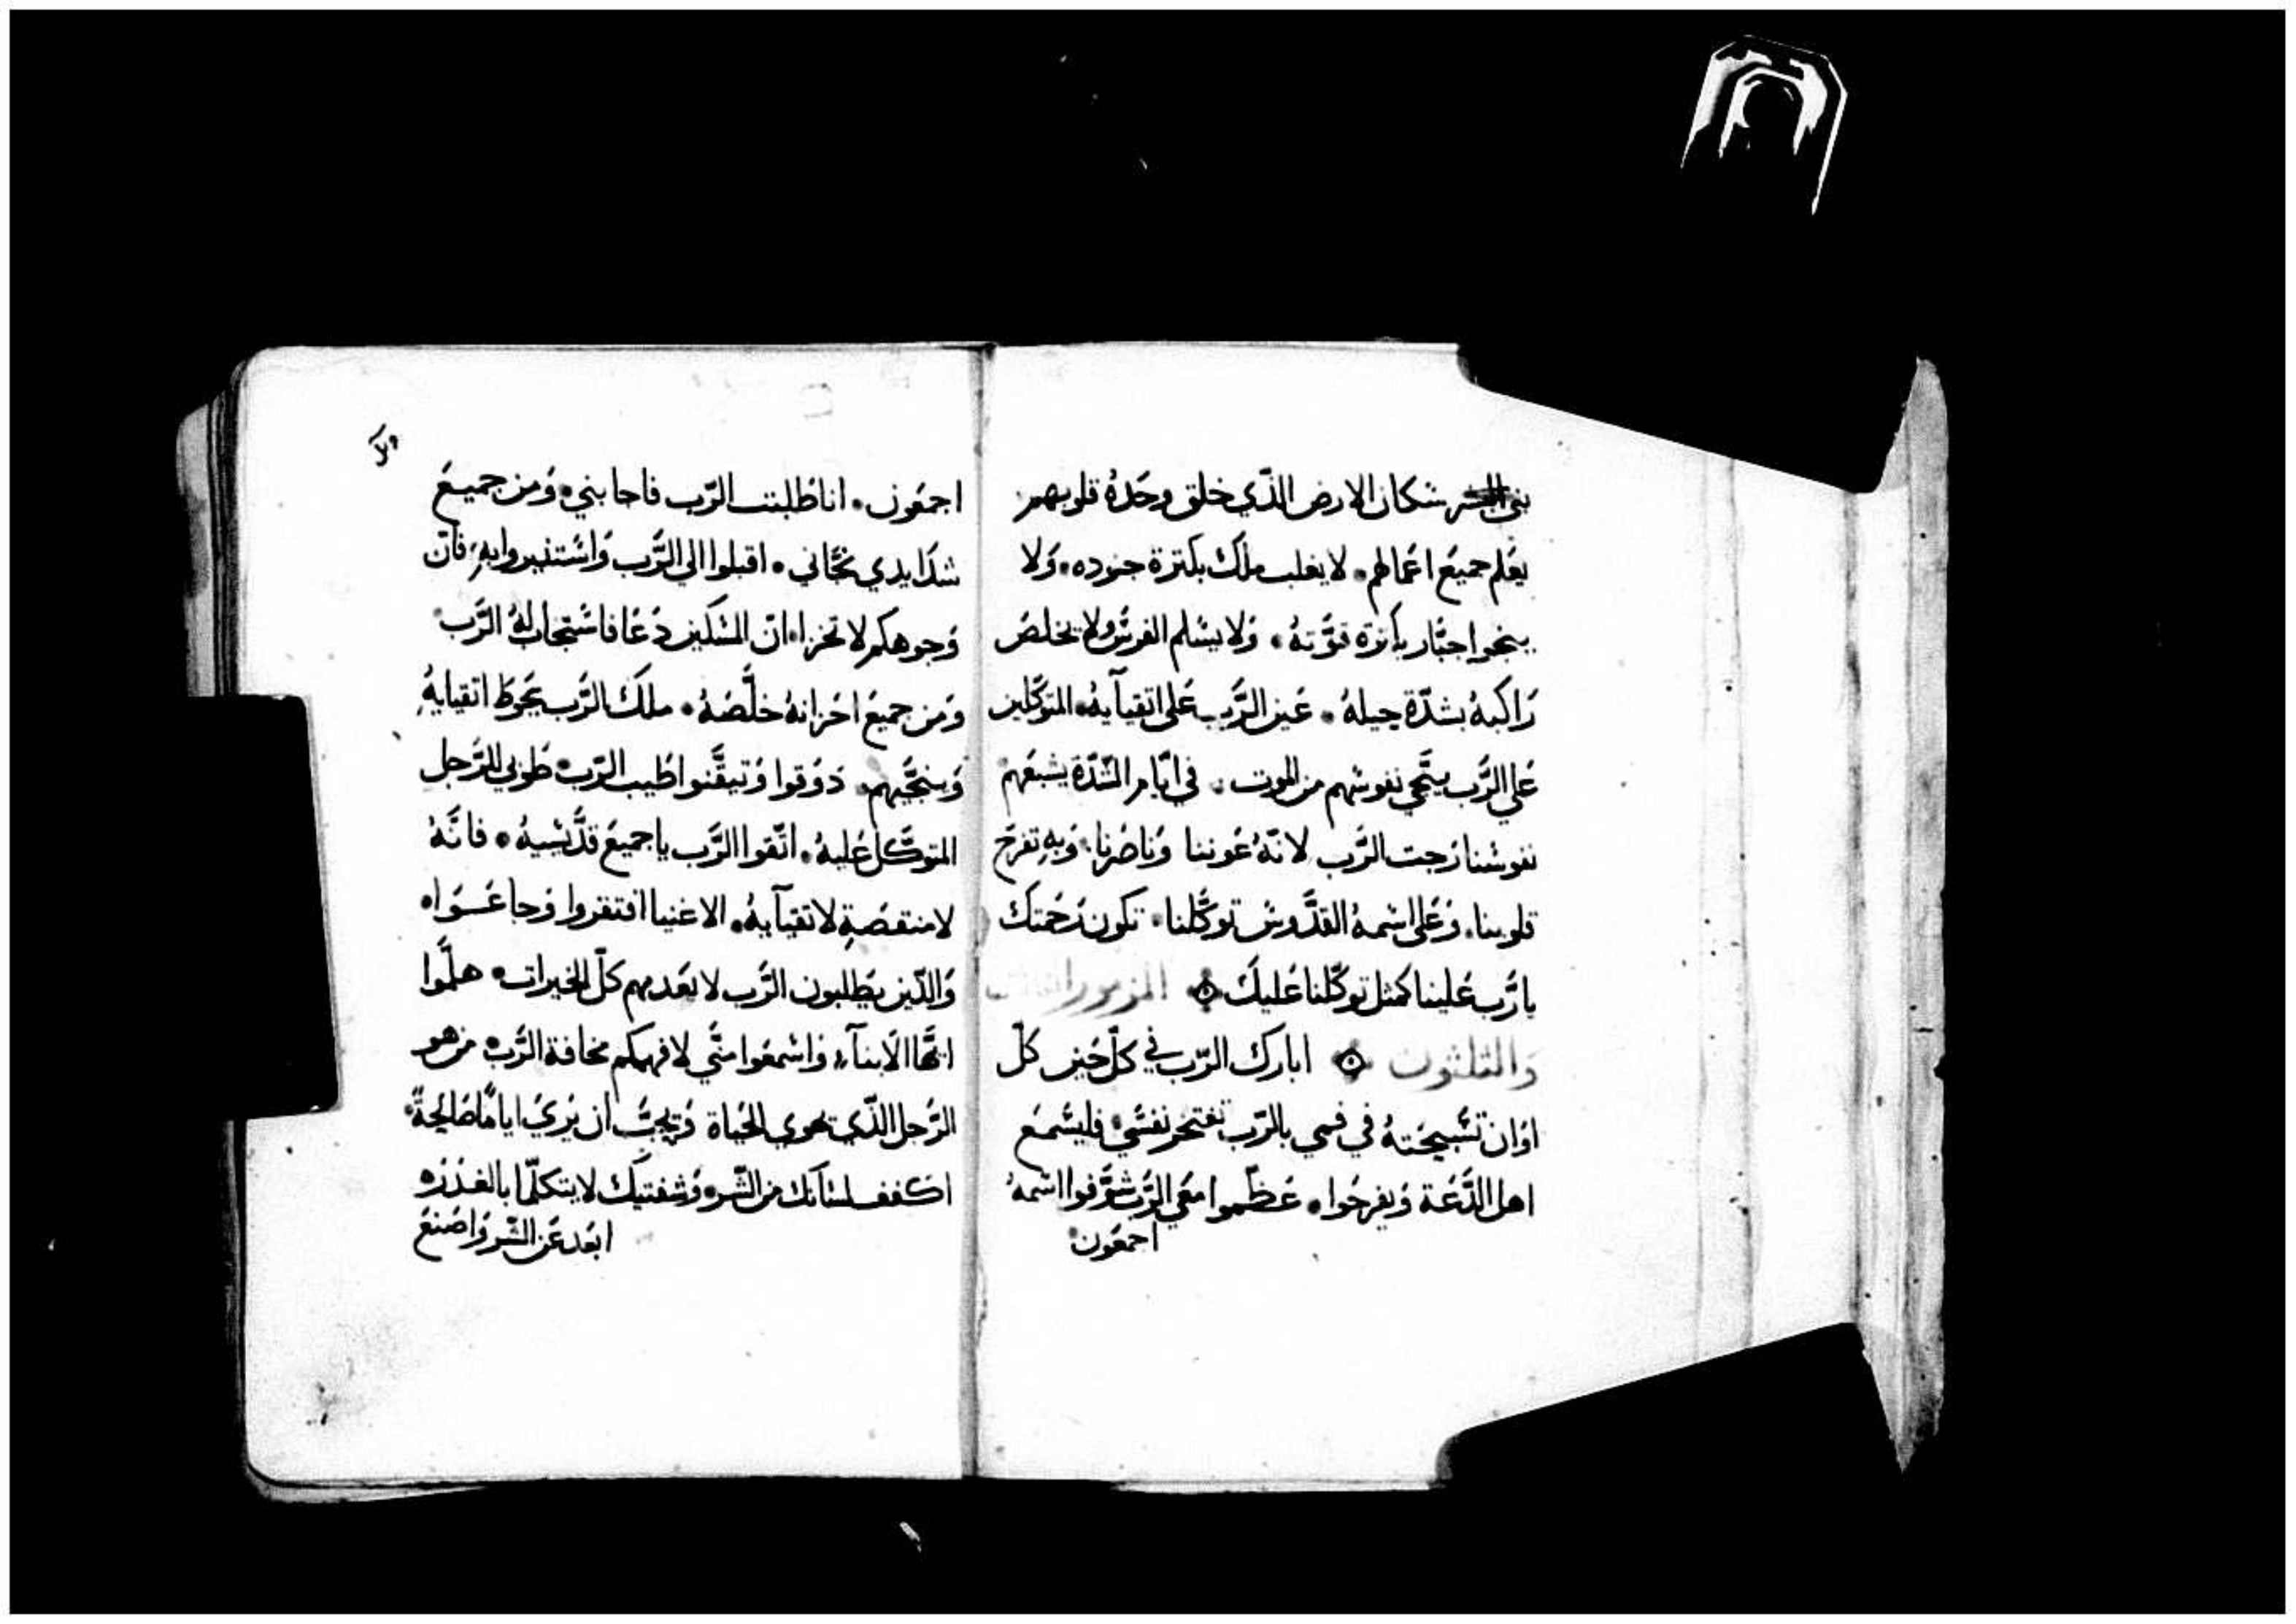 بني البشر سكان الارض الذّي خلق وحَدهُ قلوبهم
يعَلم جميعَ اعَمالهم. لا يغلب ملَك بكترة جنوده. وَلا
ينجوا جبَّار بكترة قوَّتهُ. وَلا يسَلم الفرسَ ولا تخلصَ
رَاكبهُ بشدّة حيلهُ. عَين الرَّب عَلى اتقيآيهُ. المتوكّلين
عَلي الرَّب ينَّجي نفوسَهم من الموت. في ايّام الشدّة يشبعَهم
نفوسَنا رَجت الرَّب لانّهُ عَوننا وَناصَرنا. وَبهِ تفرَح
قلوبنا. وَعَلى اسَمهُ القدَّوس توكَّلنا. تكون رَحَمتك
يا رَّب عَلينا كمثل توكّلنا عَليكَ المزمور الثالث
وَالثلثون ابارك الرّب في كلّ حَين كلّ
اوَان تسَبيحَتهُ في فمي بالرّب تفتخر نفسَي فليسَمعَ
اهل الدَّعَة وَيفرحَوا. عَظّموا معَي الرَّب شرَّفوا اسَمهُ
اجمعَون
ولا
اجمعَون. انا طَلبت الرّب فاجابني. وَمن جميعَ
شدَايدي نجّاني. اقبلوا الي الرَّب وَاسَتنيروا بهِ فانّ
وَجوهكم لا تخزا. انّ المسَكين دَعَا فاسَتجاب لهُ الرَّب
وَمن جميعَ احَزانهُ خلَّصَهُ. ملَك الرَّب يحَوطَ اتقيايهُ
وَينجّيهم. دَوَقوا وَتيقَّنوا طَيب الرّب طَوبي للرَّجل
المتوكَّل عَليهُ. اتّقوا الرَّب يا جميعَ قدَّيسَيهُ. فانَّهُ
لا منقصَةِ لاتقيآيهُ. الاغنيا افتقروا وَجاعَوا
وَالذّين يطَلبون الرَّب لا يعَدمهم كلّ الخيرات. هلمَّوا
ايَّها الابنآء وَاسَمعَوا منَّي لافهمكم مخافة الرَّب من هو
الرَّجل الذّي يهوي الحَياة وَيحَبَّ ان يرَيَ اياماً صَالحَةً
اكفف لسَانك من الشّر وَشفتيَك لا يتكلّما بالغدَر
ابعَد عَن الشّر وَاصَنعَ